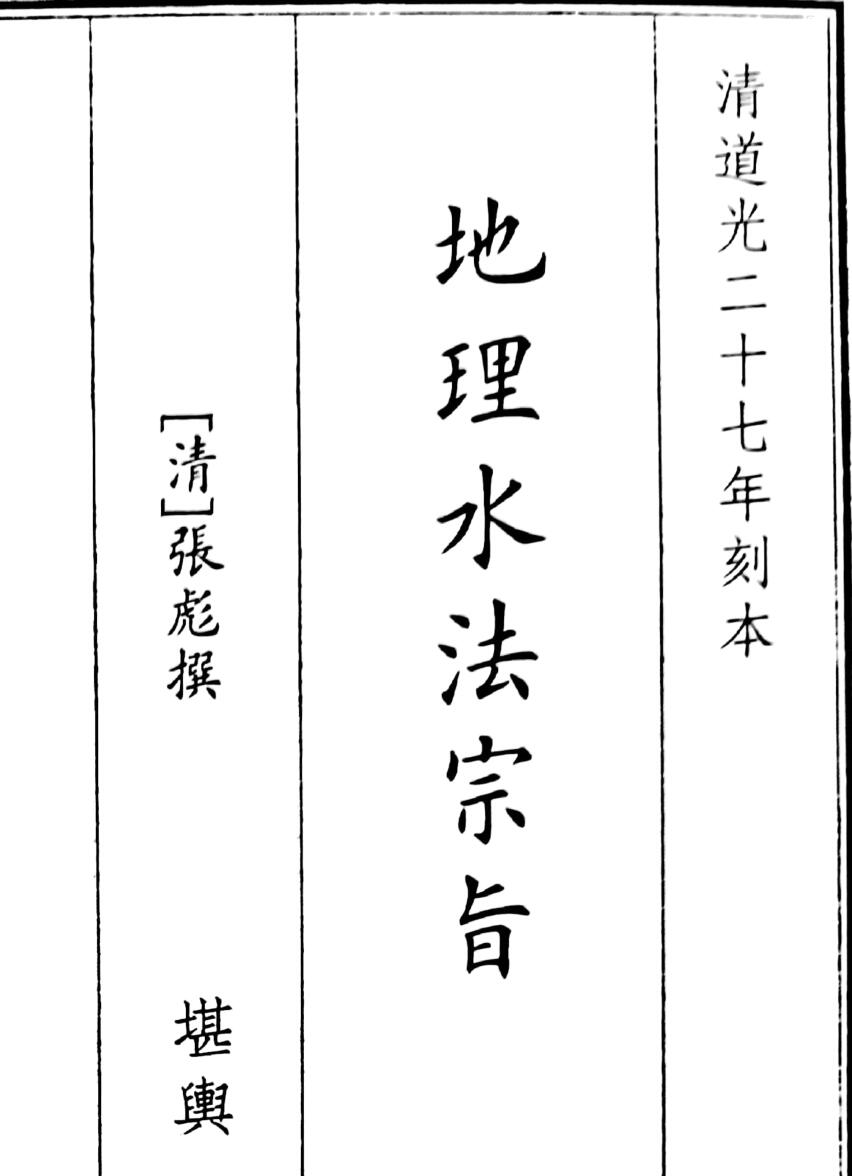 清道光二十七年刻本
地理水法宗旨
[清]張彪撰
堪輿